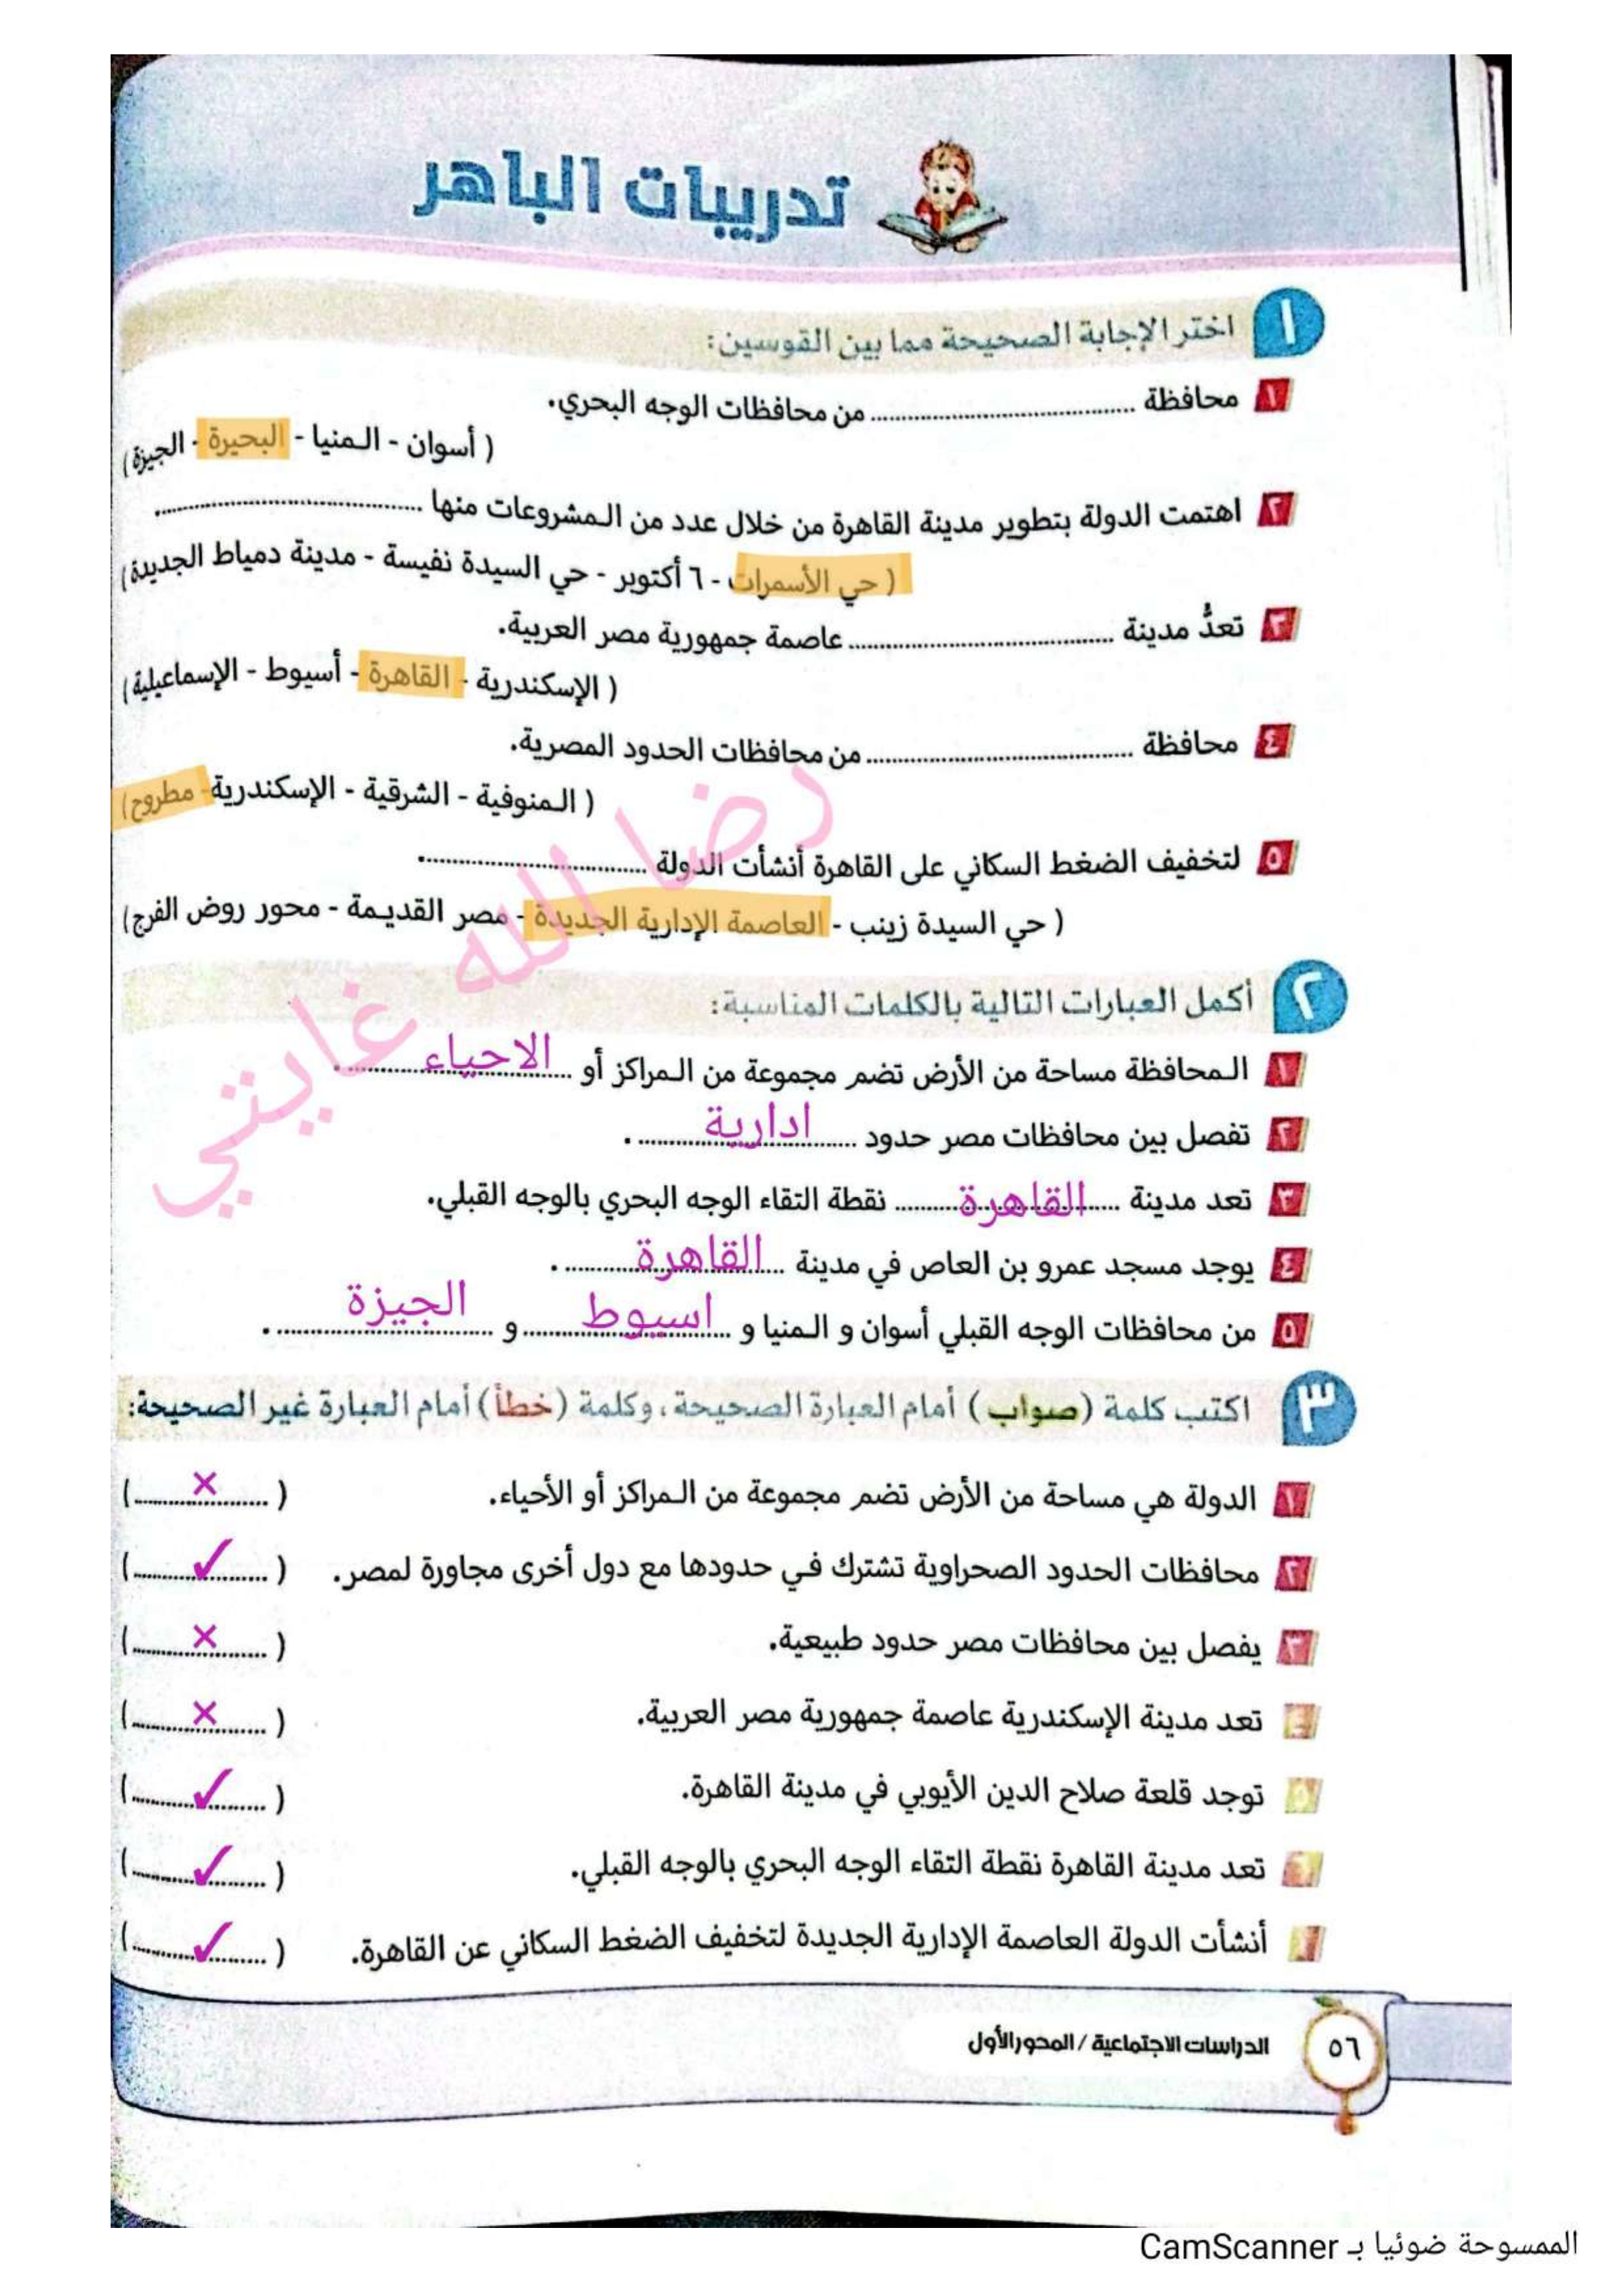 تدريبات الباهر
١ اختر الإجابة الصحيحة مما بين القوسين:
١ محافظة ........ من محافظات الوجه البحري.
( أسوان - المنيا - البحيرة - الجيزة)
٢ اهتمت الدولة بتطوير مدينة القاهرة من خلال عدد من المشروعات منها ........
( حي الأسمرات - ٦ أكتوبر - حي السيدة نفيسة - مدينة دمياط الجديدة)
٣ تعدُّ مدينة ........ عاصمة جمهورية مصر العربية.
( الإسكندرية - القاهرة - أسيوط - الإسماعيلية)
٤ محافظة ........ من محافظات الحدود المصرية.
( المنوفية - الشرقية - الإسكندرية - مطروح)
٥ لتخفيف الضغط السكاني على القاهرة أنشأت الدولة ........
( حي السيدة زينب - العاصمة الإدارية الجديدة - مصر القديمة - محور روض الفرج)
رضا الله غايتي
٢ أكمل العبارات التالية بالكلمات المناسبة:
١ المحافظة مساحة من الأرض تضم مجموعة من المراكز أو الاحياء .
٢ تفصل بين محافظات مصر حدود ادارية .
٣ تعد مدينة القاهرة نقطة التقاء الوجه البحري بالوجه القبلي.
٤ يوجد مسجد عمرو بن العاص في مدينة القاهرة .
٥ من محافظات الوجه القبلي أسوان و المنيا و اسيوط و الجيزة .
٣ اكتب كلمة (صواب) أمام العبارة الصحيحة، وكلمة (خطأ) أمام العبارة غير الصحيحة:
١ الدولة هي مساحة من الأرض تضم مجموعة من المراكز أو الأحياء. ( × )
٢ محافظات الحدود الصحراوية تشترك في حدودها مع دول أخرى مجاورة لمصر. ( ✓ )
٣ يفصل بين محافظات مصر حدود طبيعية. ( × )
٤ تعد مدينة الإسكندرية عاصمة جمهورية مصر العربية. ( × )
٥ توجد قلعة صلاح الدين الأيوبي في مدينة القاهرة. ( ✓ )
تعد مدينة القاهرة نقطة التقاء الوجه البحري بالوجه القبلي. ( ✓ )
أنشأت الدولة العاصمة الإدارية الجديدة لتخفيف الضغط السكاني عن القاهرة. ( ✓ )
٥٦ الدراسات الاجتماعية / المحور الأول
الممسوحة ضوئيا بـ CamScanner